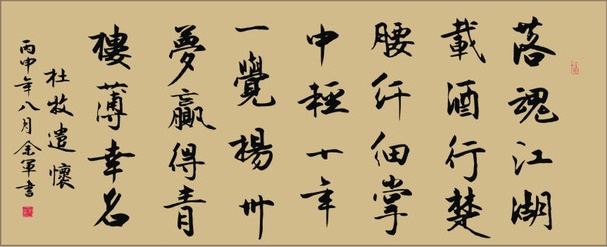 落魂江湖
載酒行楚
腰纤细掌
中輕十年
一覺楊州
夢贏得青
樓薄幸名
杜牧遣懷
丙申年八月金軍書